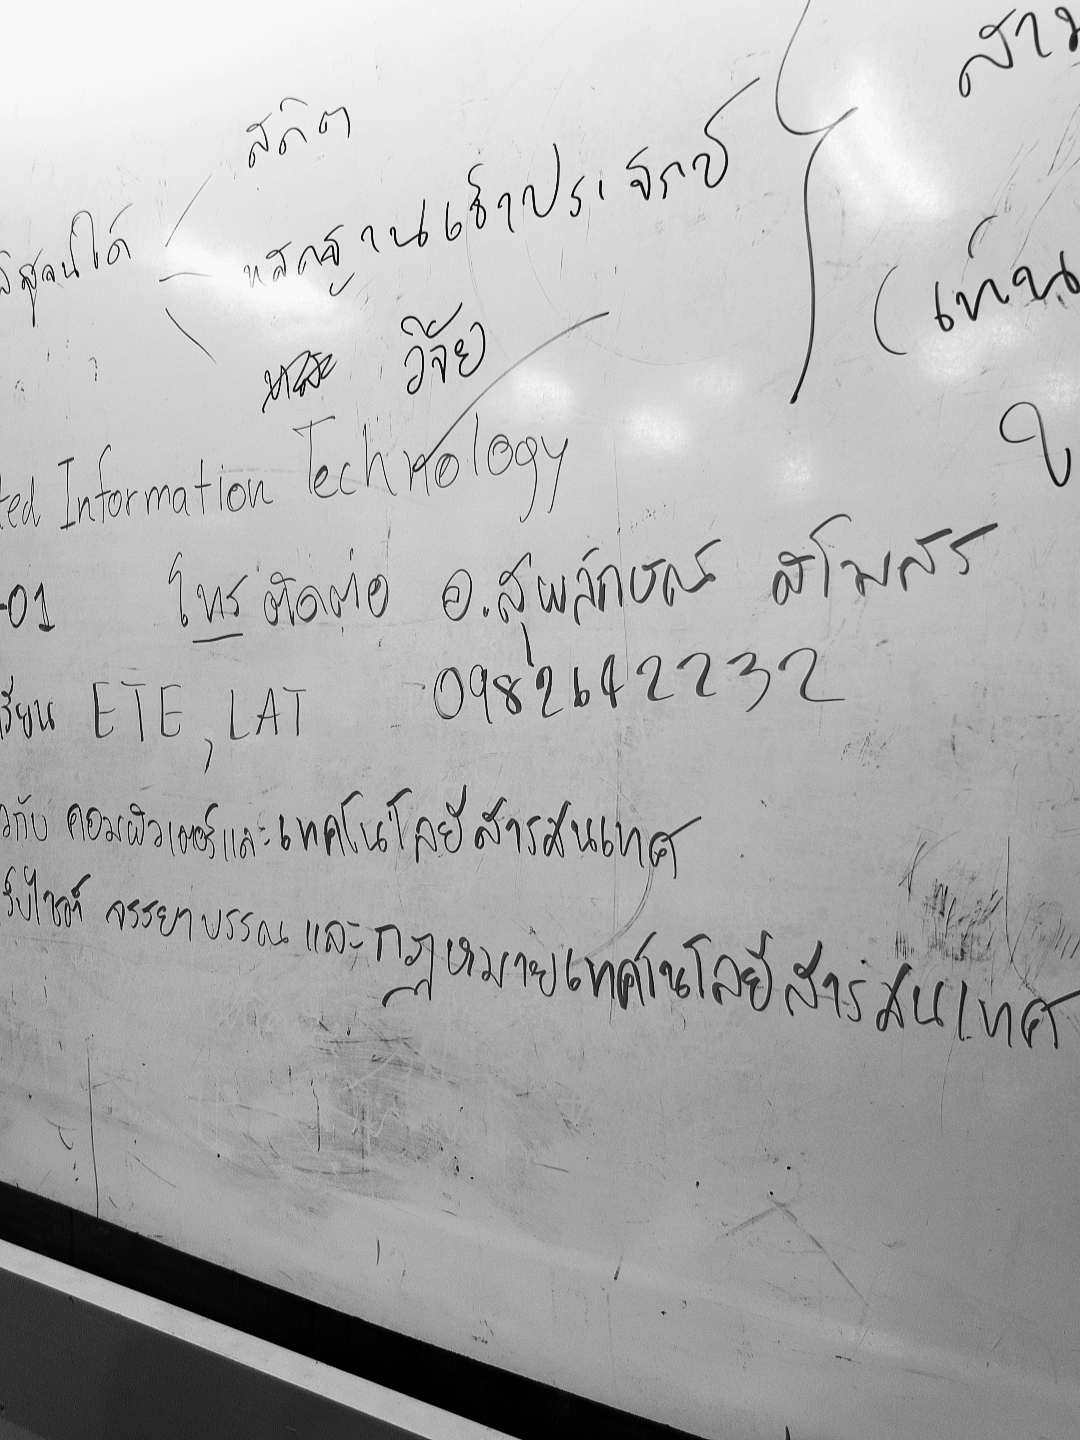 สถิติ
พิสูจน์ได้ หลักฐานเชิงประจักษ์
วิจัย
(เห็น
ted Information Technology
-01 โทรติดต่อ อ.สุพลักษณ์ สโมสร
เรียน ETE, LAT 0982642232
วกับ คอมพิวเตอร์และเทคโนโลยีสารสนเทศ
ว็บไซต์ จรรยาบรรณ และกฎหมายเทคโนโลยีสารสนเทศ